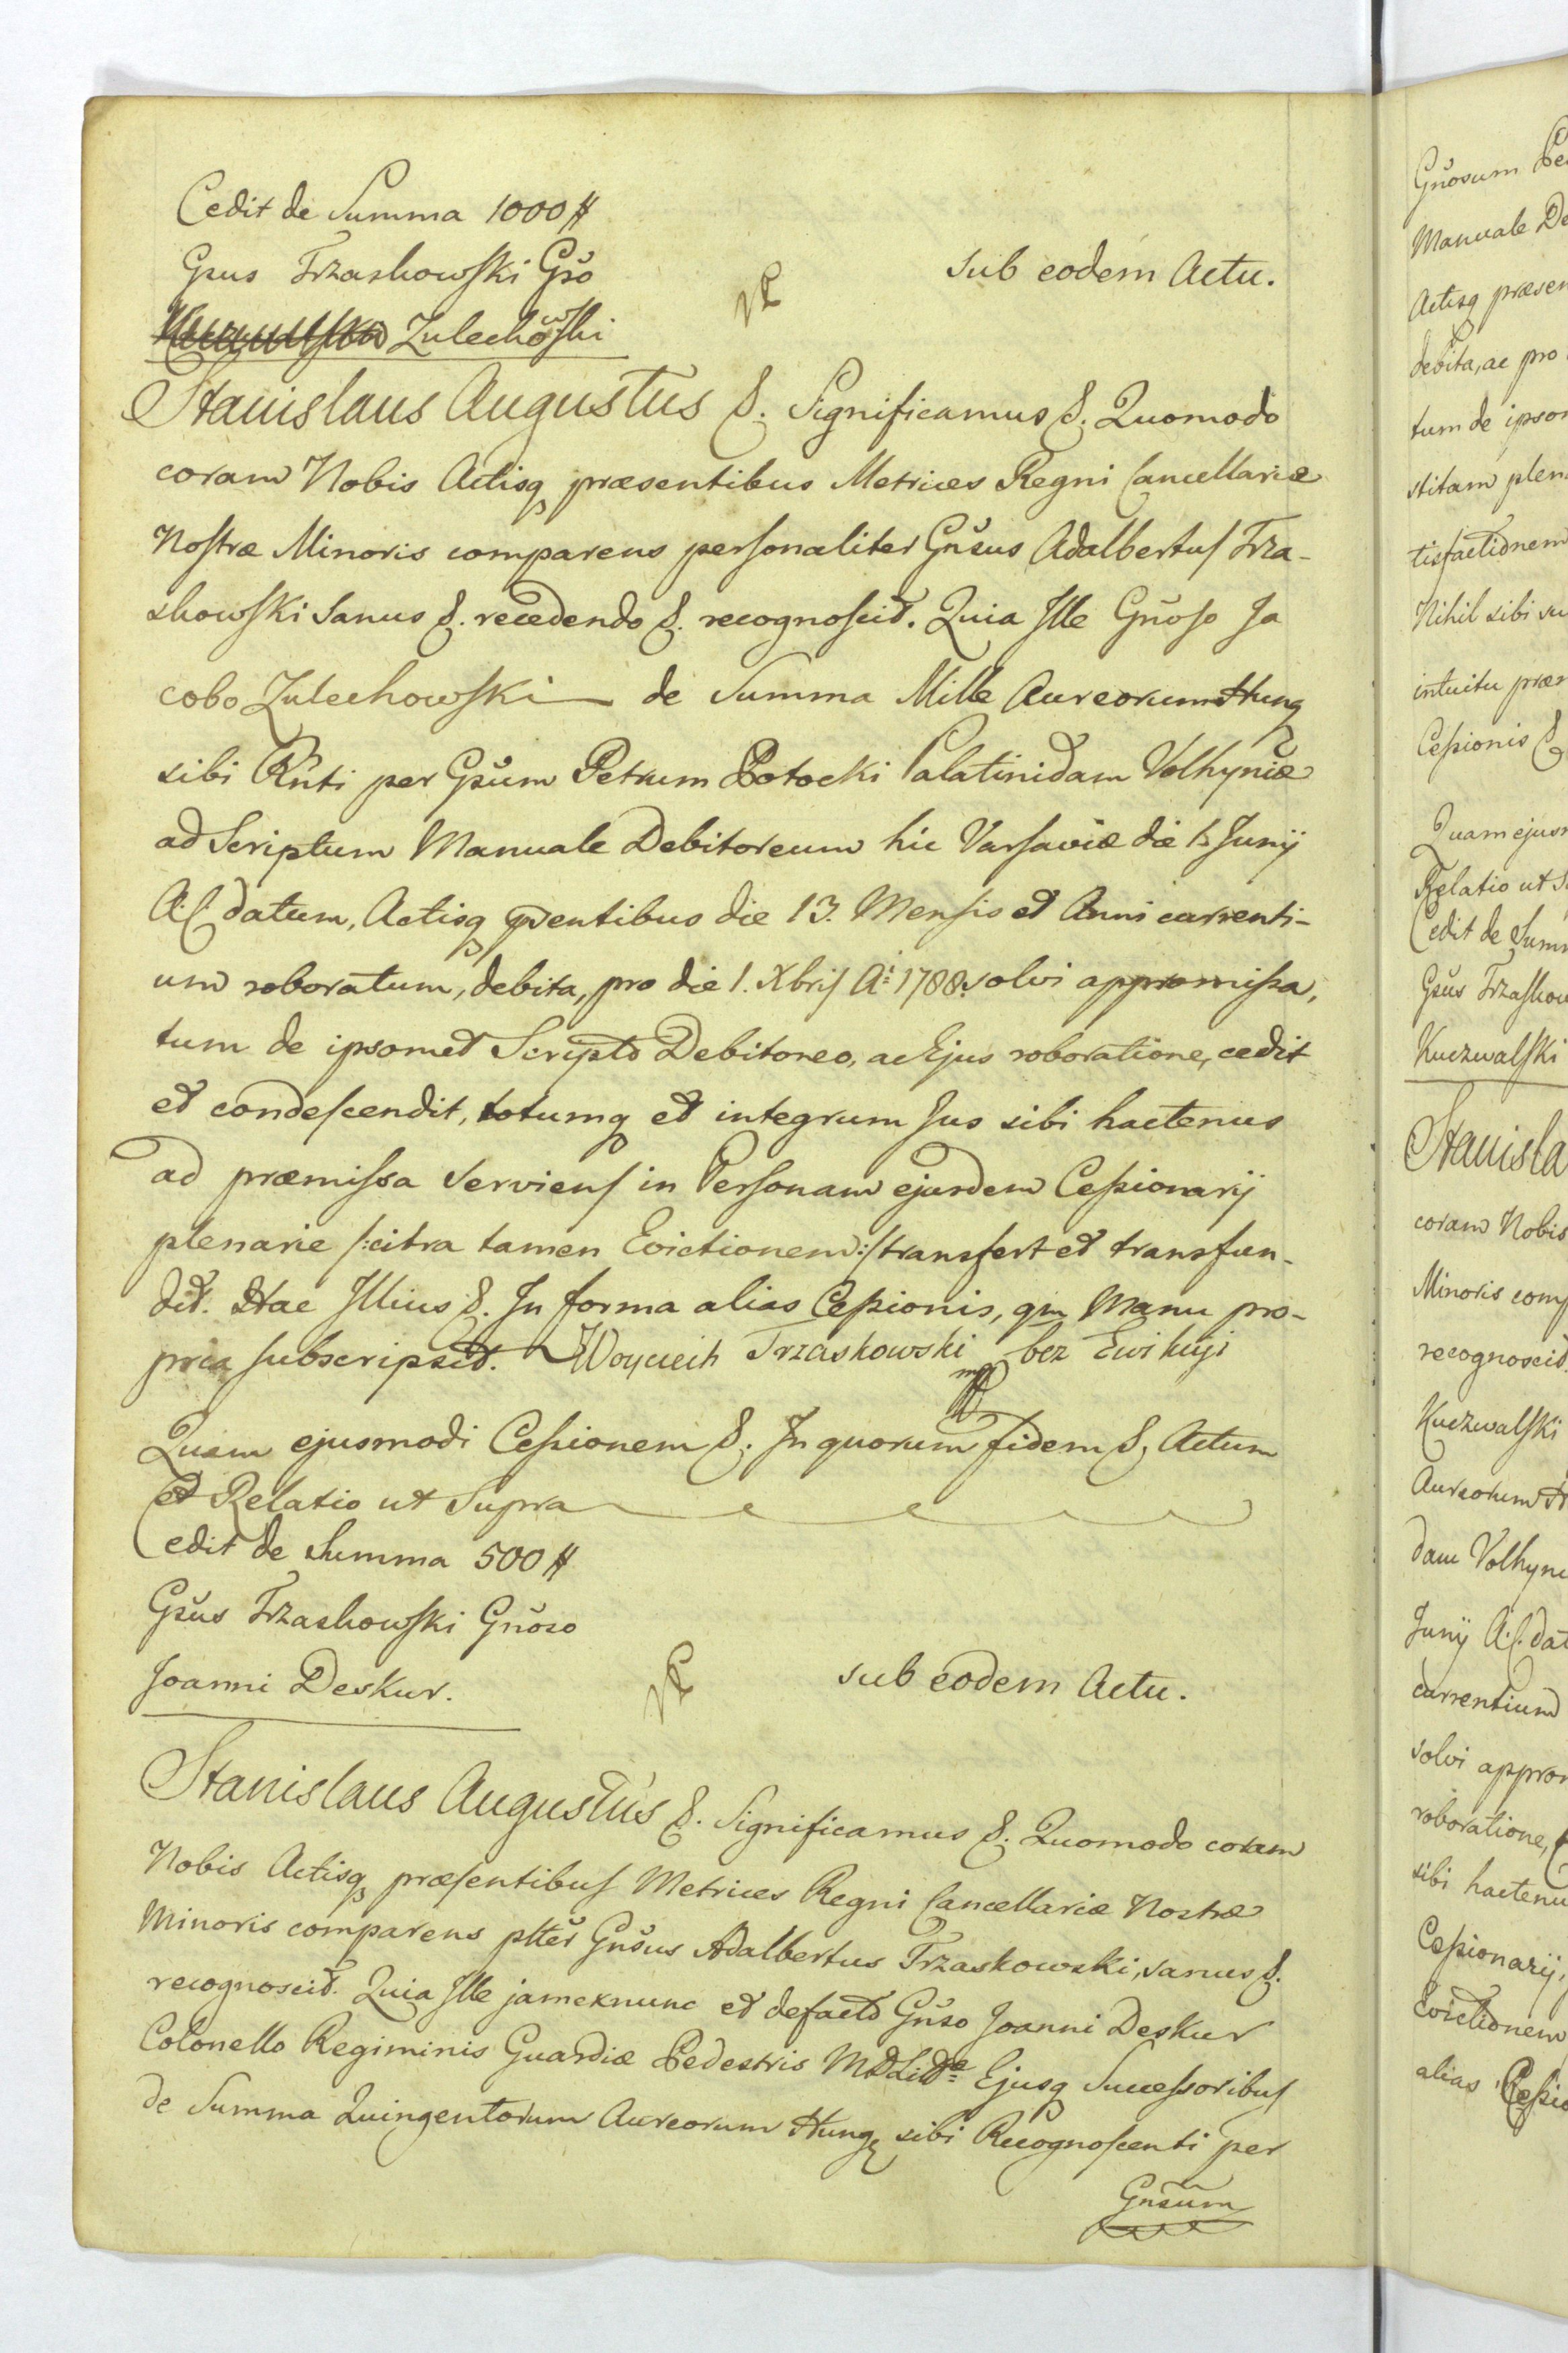 Cedit de Summa 1000 #
Gsus Trzaskowski Gso
Zulechowski
sub eodem Actu.
Stanislaus Augustus &. Significamus &. Quomodo
coram Nobis Actisq præsentibus Metrices Regni Cancellariæ
Nostræ Minoris comparens personaliter Gnsus Adalbertus Trza-
skowski Sanus &. recedendo &. recognoscit. Quia Ille Gnoso Ja
cobo Zulechowski de Summa Mille Aureorum Hung
sibi Rñti per Gsum Petrum Potocki Palatinidam Volhyniæ
ad Scriptum Manuale Debitoreum hic Varsaviæ die Junij
A. C. datum, Actisq pñtibus die 13. Mensis et Anni currenti-
um roboratum, debita, pro die 1. Xbris Ai 1788. solvi appromissa,
tum de ipsomet Scripto Debitoreo, ac Ejus roboratione, cedit
et condescendit, totumq et integrum Jus sibi hactenus
ad præmissa Serviens in Personam ejusdem Cessionarij
plenarie /:citra tamen Evictionem:/ transfert et transfun-
dit. Hac Illius &. In forma alias Cessionis, qm Manu pro-
pria subscripsit. Woyciech Trzaskowski bez Ewikcyi
mp
Quam ejusmodi Cessionem &. In quorum fidem &. Actum
et Relatio ut Supra
Cedit de Summa 500 #
Gsus Trzaskowski Gnoso
Joanni Deskur.
sub eodem Actu.
Stanislaus Augustus &. Significamus &. Quomodo coram
Nobis Actisq præsentibus Metrices Regni Cancellariæ Nostræ
Minoris comparens pltter Gnsus Adalbertus Trzaskowski, sanus &.
recognoscit. Quia Ille jam ex nunc et defacto Gnso Joanni Deskur
Colonello Regiminis Guardiæ Pedestris MDLidæ Ejusq Successoribus
de Summa Quingentorum Aureorum Hung sibi Recognoscenti per
Gnsum
Gnosum
Manuale
Actisq præsen
debita, ac pro
tum de ipsom
stitam plen
tisfactionem
Nihil sibi
intuitu præ
Cessionis &
Quam ejusm
Relatio ut S
Cedit de Sum
Gsus Trzaskow
Kuczwalski
Stanisla
coram Nobis
Minoris comp
recognoscit
Kuczwalski
Aureorum H
dam Volhyni
Junij A. C. dat
currentium
solvi approm
roboratione,
sibi hactenu
Cessionarij,
Evictionem
alias Cessio